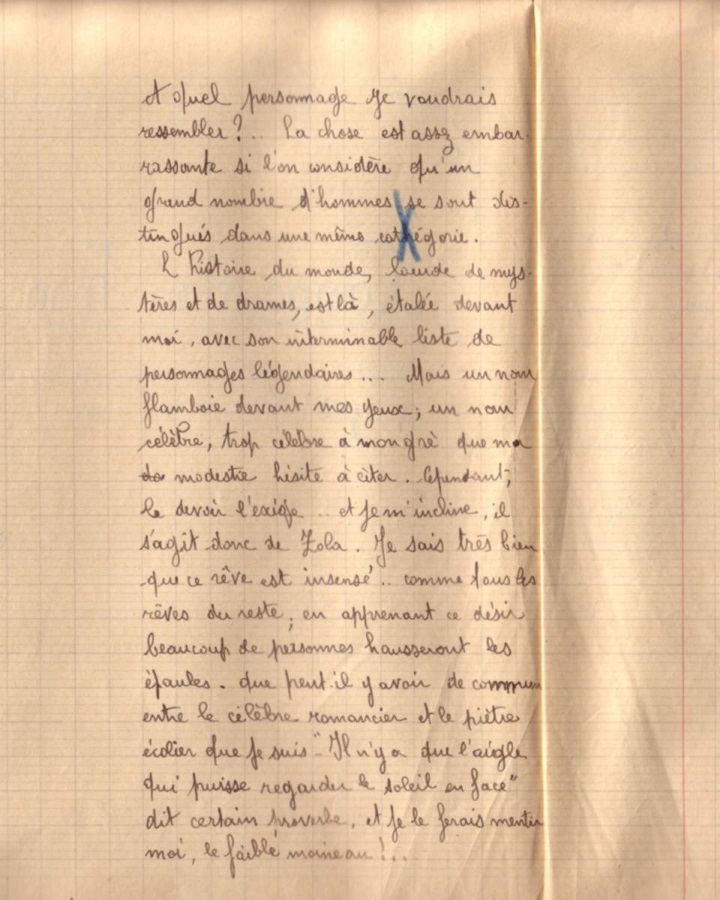 A quel personnage je voudrais
ressembler ?.. La chose est assez embar-
rassante si l'on considère qu'un
grand nombre d'hommes se sont dis-
tingués dans une même cathégorie.
L'histoire du monde, lourde de mys-
tères et de drames, est là, étalée devant
moi, avec son interminable liste de
personnages légendaires ... Mais un nom
flamboie devant mes yeux ; un nom
célèbre, trop célèbre à mon gré que ma
modestie hésite à citer. Cependant,
le devoir l'exige .. et je m'incline, il
s'agit donc de Zola. Je sais très bien
que ce rêve est insensé .. comme tous les
rêves du reste ; en apprenant ce désir
beaucoup de personnes hausseront les
épaules. que peut-il y avoir de commun
entre le célèbre romancier et le piètre
écolier que je suis "Il n'y a que l'aigle
qui puisse regarder le soleil en face"
dit certain proverbe, et je le ferais mentir
moi, le faible moineau !..